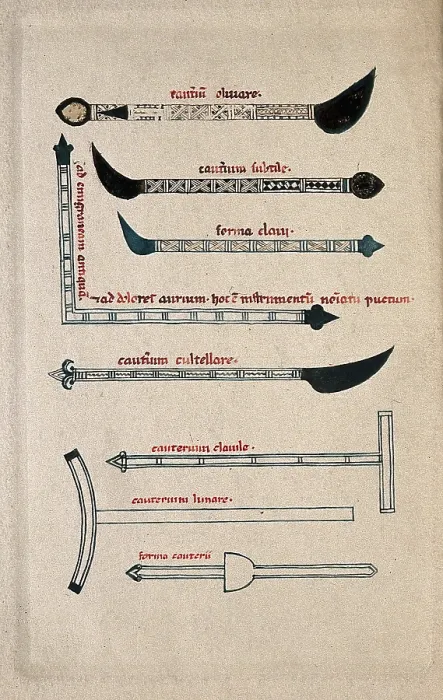 cautiũ oliuare.
cautiũm subtile.
forma claui.
ad emigraneam antiquã
⁊ ad dolores aurium. hoc ẽ instrumentũ noĩatũ puctum.
cautiũm cultellare.
cauterium clauile.
cauterium lunare.
forma cauterii